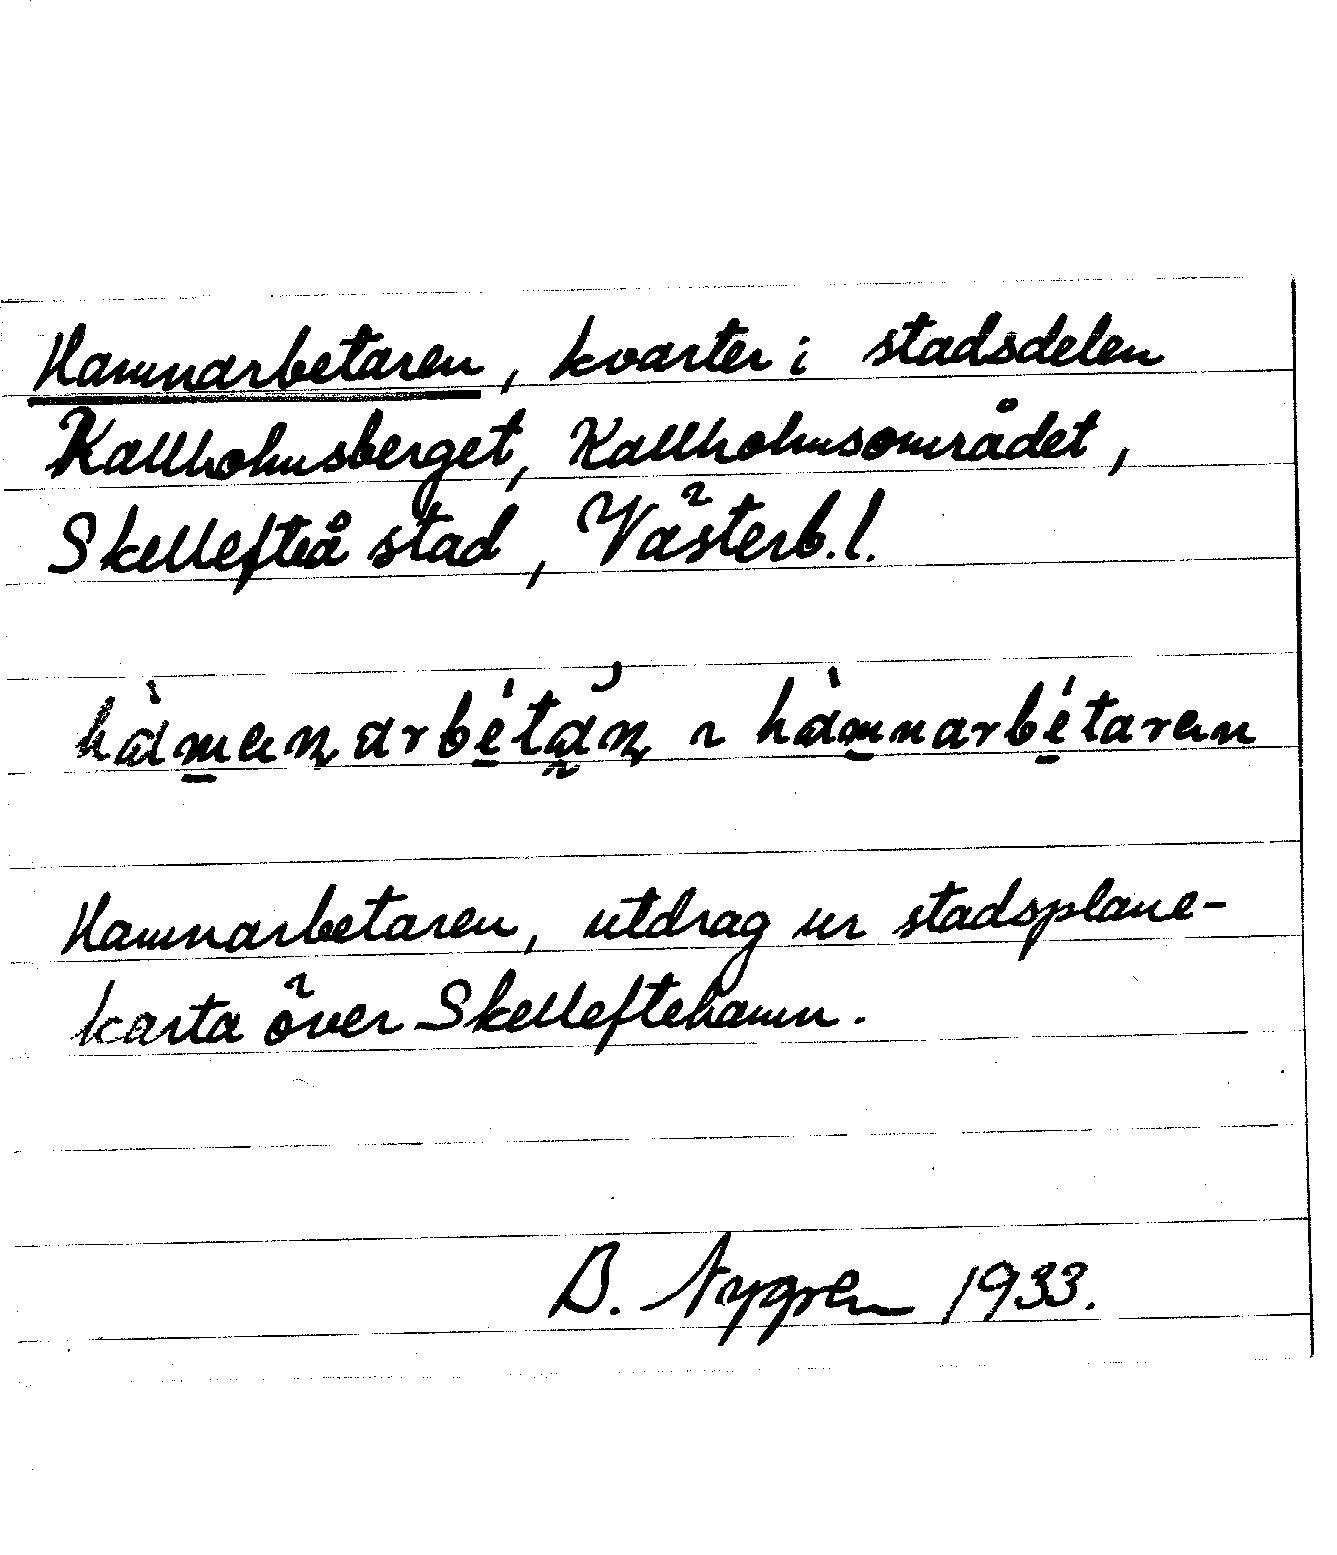 Hamnarbetaren, kvarter i stadsdelen
Kallholmsberget, Kallholmsområdet,
Skellefteå stad, Västerb.l.
hàmenarbétąn ~ hàmnarbétaren
Hamnarbetaren, utdrag ur stadsplane-
karta över Skelleftehamn.
B. Nygren 1933.